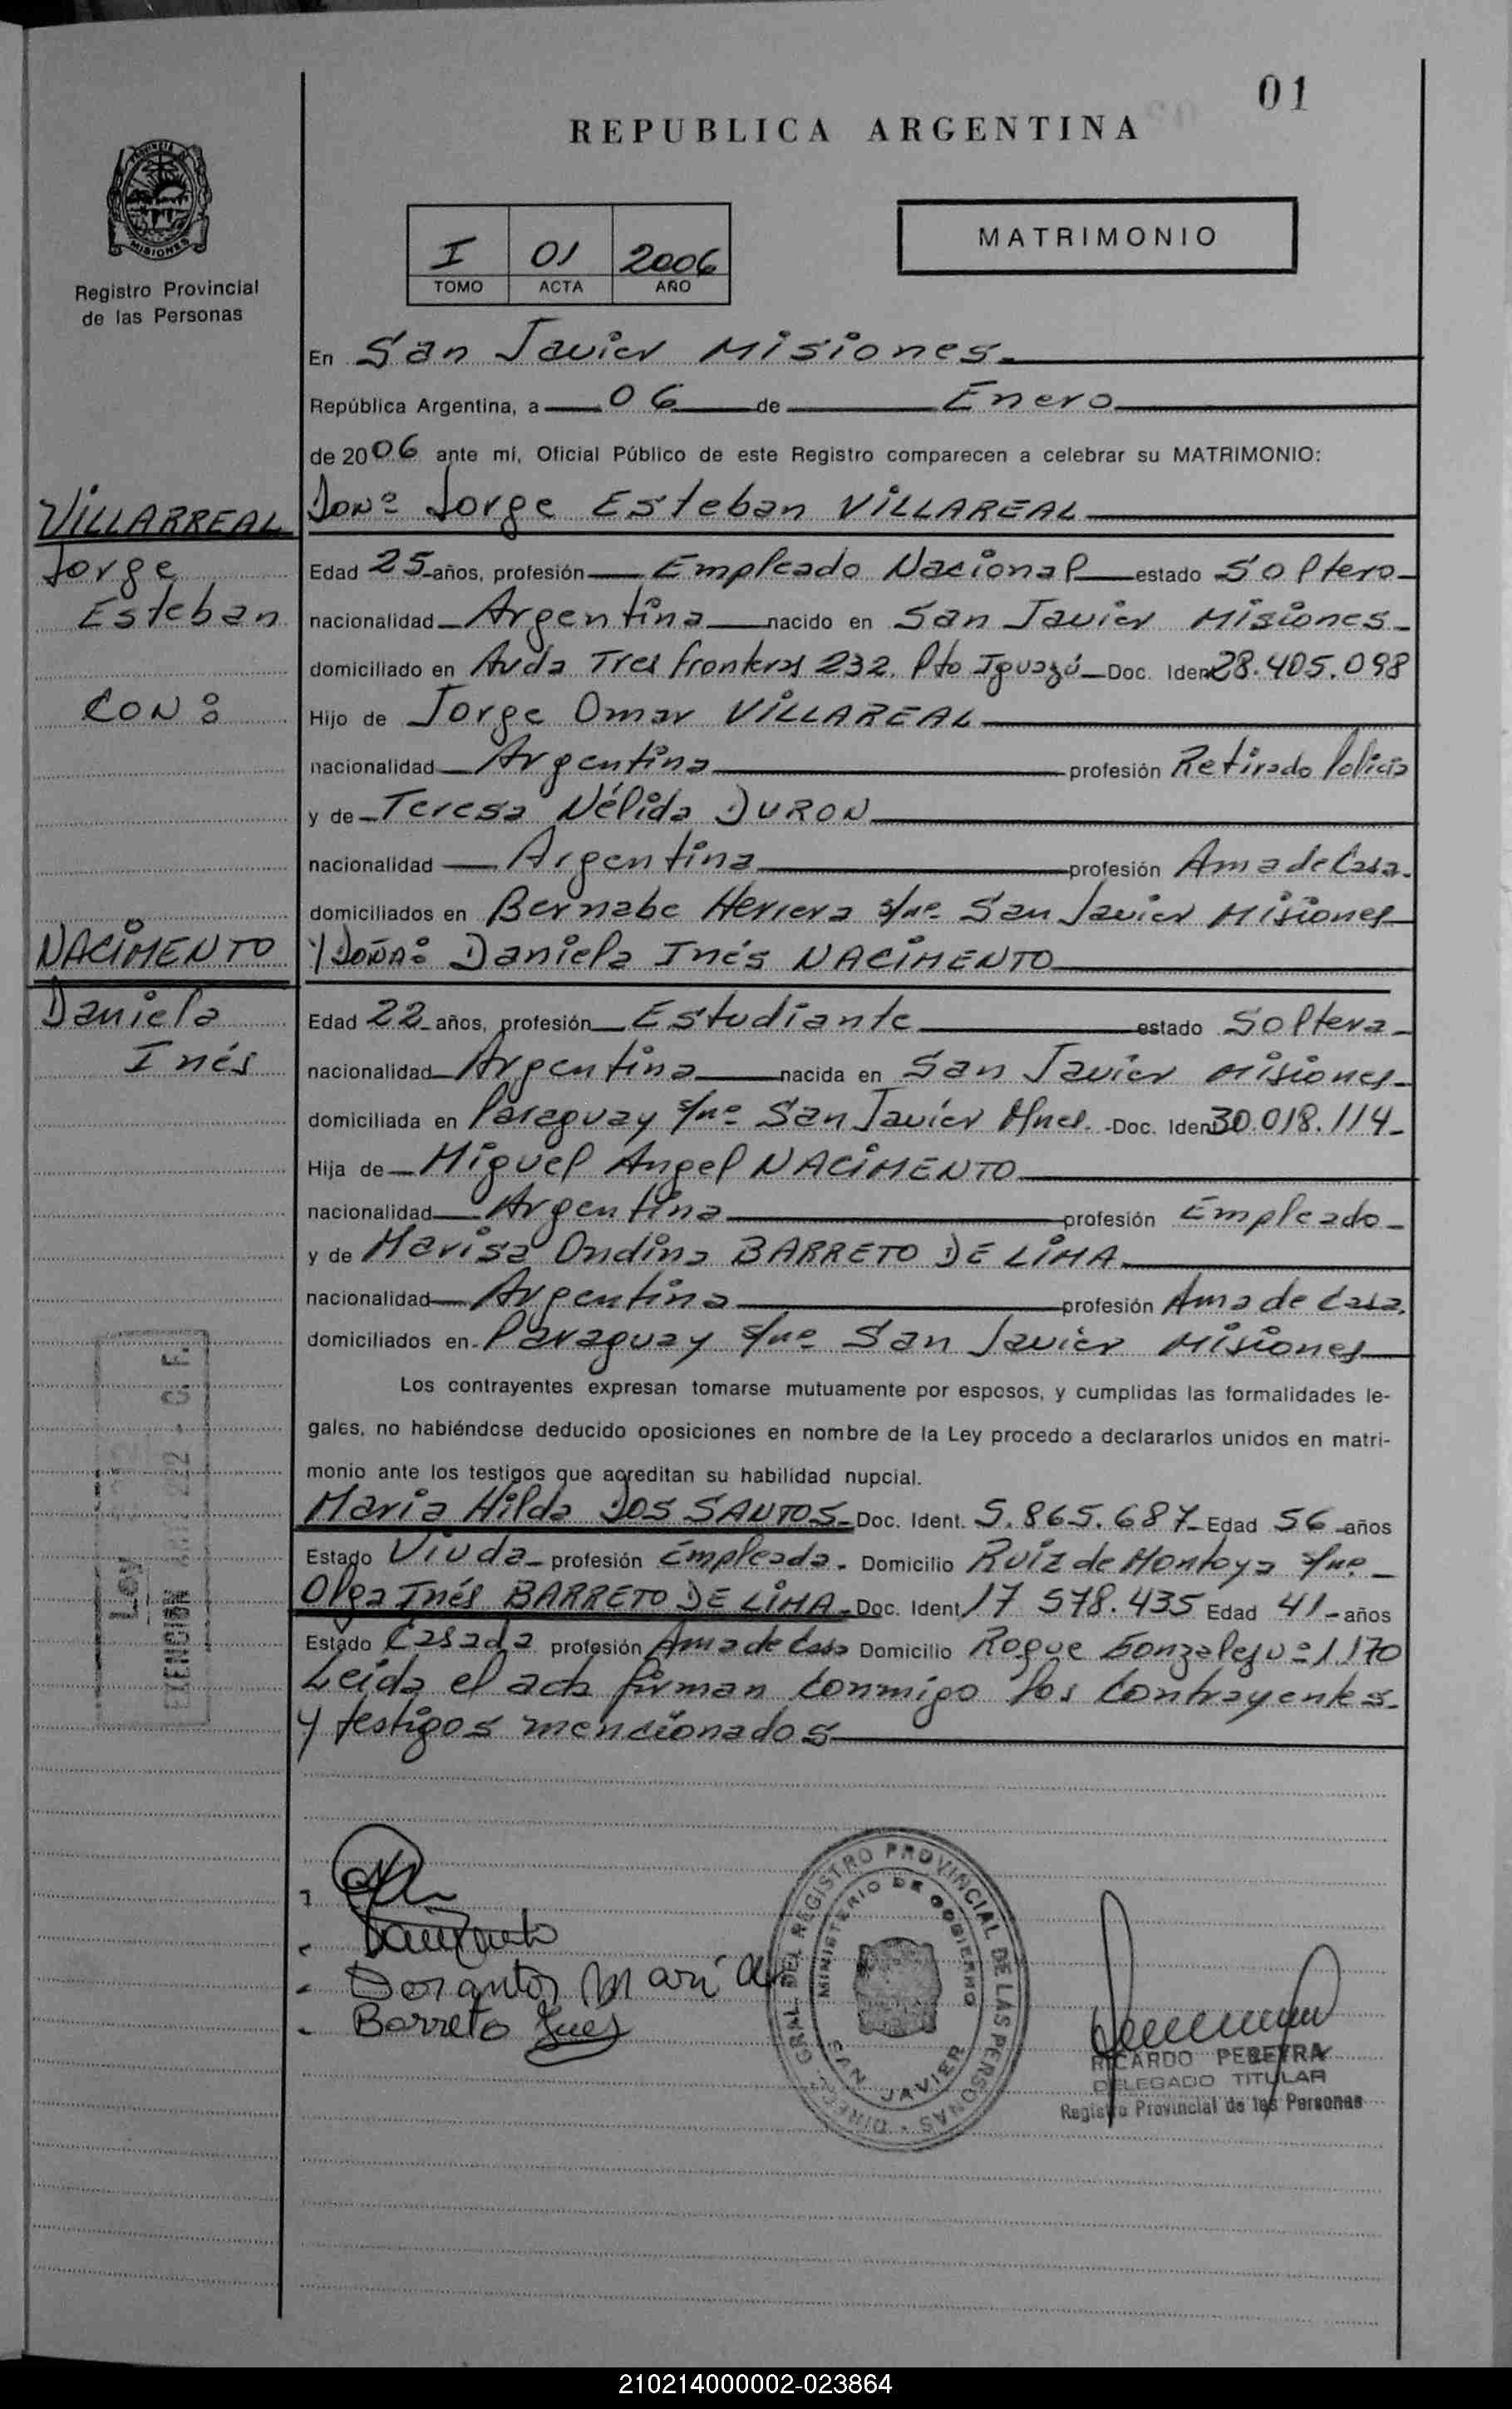 01
REPUBLICA ARGENTINA
MISIONES
Registro Provincial
de las Personas
I 01 2006
TOMO ACTA AÑO
MATRIMONIO
En San Javier Misiones
República Argentina, a 06 de Enero
de 2006 ante mí, Oficial Público de este Registro comparecen a celebrar su MATRIMONIO:
VILLARREAL
Jorge
Esteban
CON:
NACIMENTO
Daniela
Inés
Don: Jorge Esteban VILLAREAL
Edad 25 años, profesión Empleado Nacional estado Soltero
nacionalidad Argentina nacido en San Javier Misiones
domiciliado en Avda Tres fronteras 232. Pto Iguazú Doc. Iden 28.405.098
Hijo de Jorge Omar VILLAREAL
nacionalidad Argentina profesión Retirado Policia
y de Teresa Nélida DURON
nacionalidad Argentina profesión Ama de Casa.
domiciliados en Bernabe Herrera s/nº San Javier Misiones
Y DOÑA: Daniela Inés NACIMENTO
Edad 22 años, profesión Estudiante estado Soltera
nacionalidad Argentina nacida en San Javier Misiones
domiciliada en Paraguay s/nº San Javier Mnes. Doc. Iden 30.018.114
Hija de Miguel Angel NACIMENTO
nacionalidad Argentina profesión Empleado
y de Marisa Ondina BARRETO DE LIMA
nacionalidad Argentina profesión Ama de Casa.
domiciliados en Paraguay s/nº San Javier Misiones
Los contrayentes expresan tomarse mutuamente por esposos, y cumplidas las formalidades le-
gales, no habiéndose deducido oposiciones en nombre de la Ley procedo a declararlos unidos en matri-
monio ante los testigos que acreditan su habilidad nupcial.
Maria Hilda DOS SANTOS Doc. Ident. 5.865.687 Edad 56 años
Estado Viuda profesión Empleada. Domicilio Ruiz de Montoya s/nº
Olga Inés BARRETO DE LIMA Doc. Ident 17 578.435 Edad 41 años
Estado Casada profesión Ama de Casa Domicilio Roque Gonzalez nº 1170
Leida el acta firman conmigo los contrayentes
y testigos mencionados
Ley
Dosantos Maria
Barreto Ines
REGISTRO PROVINCIAL DE LAS PERSONAS
MINISTERIO DE GOBIERNO
SAN JAVIER
RICARDO PEREYRA
DELEGADO TITULAR
Registro Provincial de las Personas
210214000002-023864